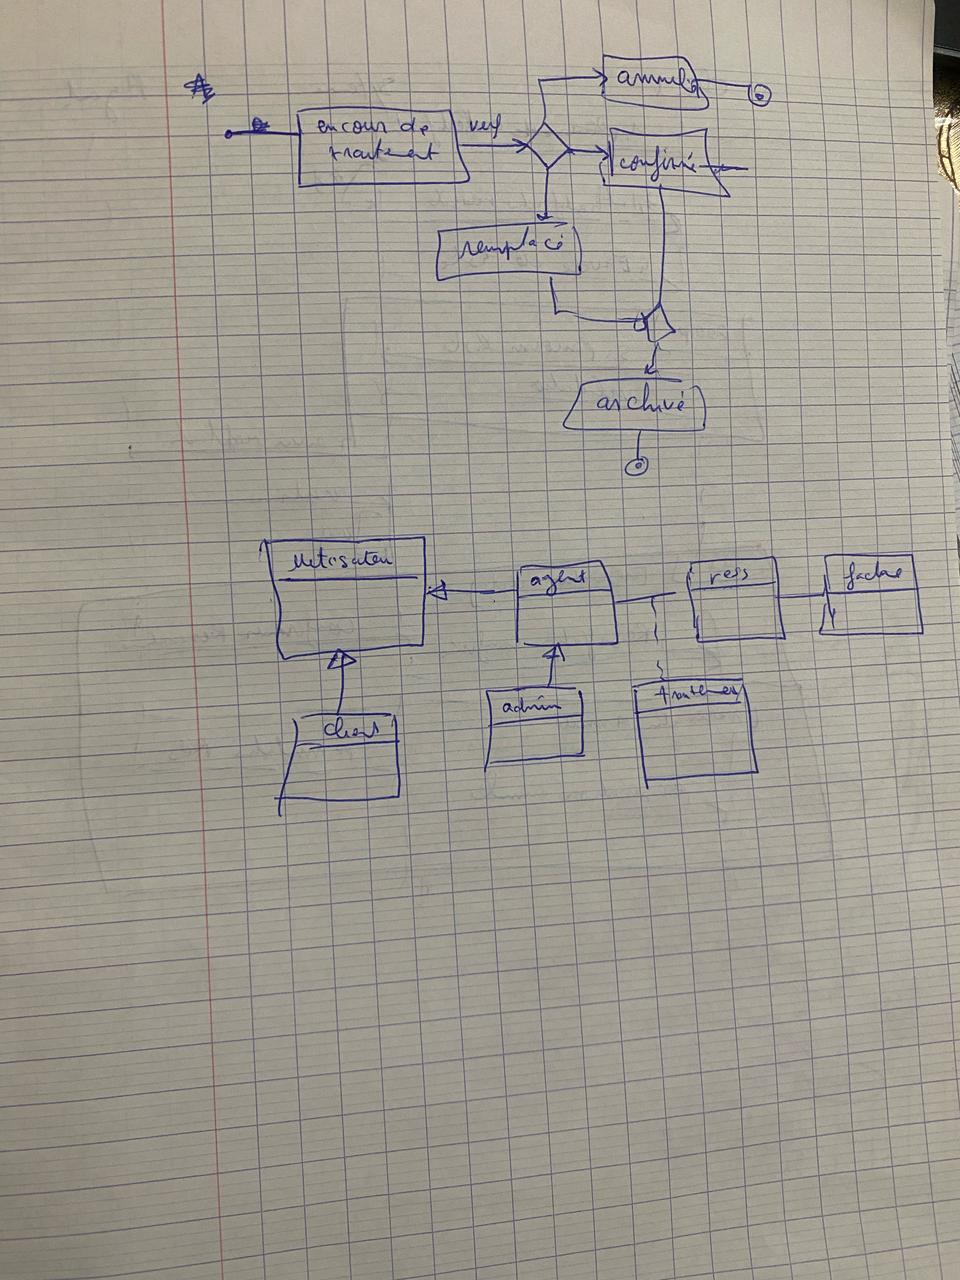 annulé
encour de
traitement
verf
confirmé
remplacé
archivé
utilisateur
agent
ress
facture
client
admin
traitement